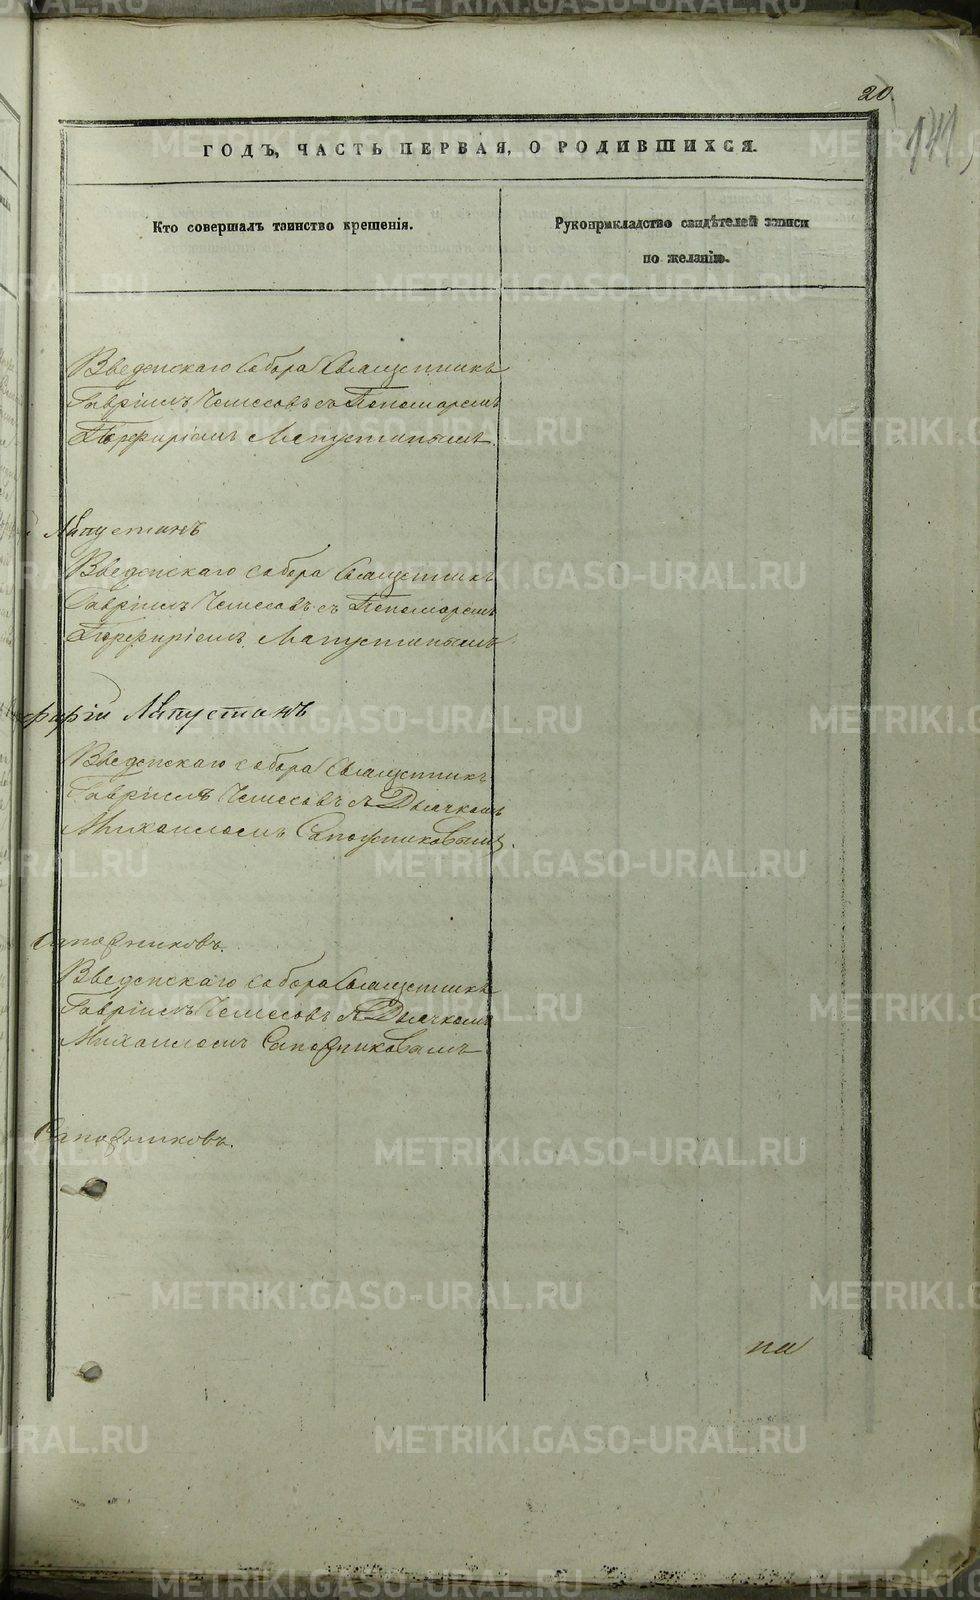 20.
141,
ГОДЪ, ЧАСТЬ ПЕРВАЯ, О РОДИВШИХСЯ.
Кто совершалъ таинство крещенія.
Рукоприкладство свидѣтелей записи
по желанію.
Введенскаго Собора Священникъ
Гавріилъ Чемесовъ съ Пономаремъ
Порфиріемъ Лапустинымъ.
Лапустинъ
Введенскаго собора Священникъ
Гавріилъ Чемесовъ съ Пономаремъ
Порфиріемъ Лапустинымъ
Лапустинъ
Введенскаго собора Священникъ
Гавріилъ Чемесовъ съ Дьячкомъ
Михаиломъ Сапожниковымъ.
Сапожниковъ.
Введенскаго собора Священникъ
Гавріилъ Чемесовъ съ Дьячкомъ
Михаиломъ Сапожниковымъ
Сапожниковъ.
на
METRIKI.GASO-URAL.RU